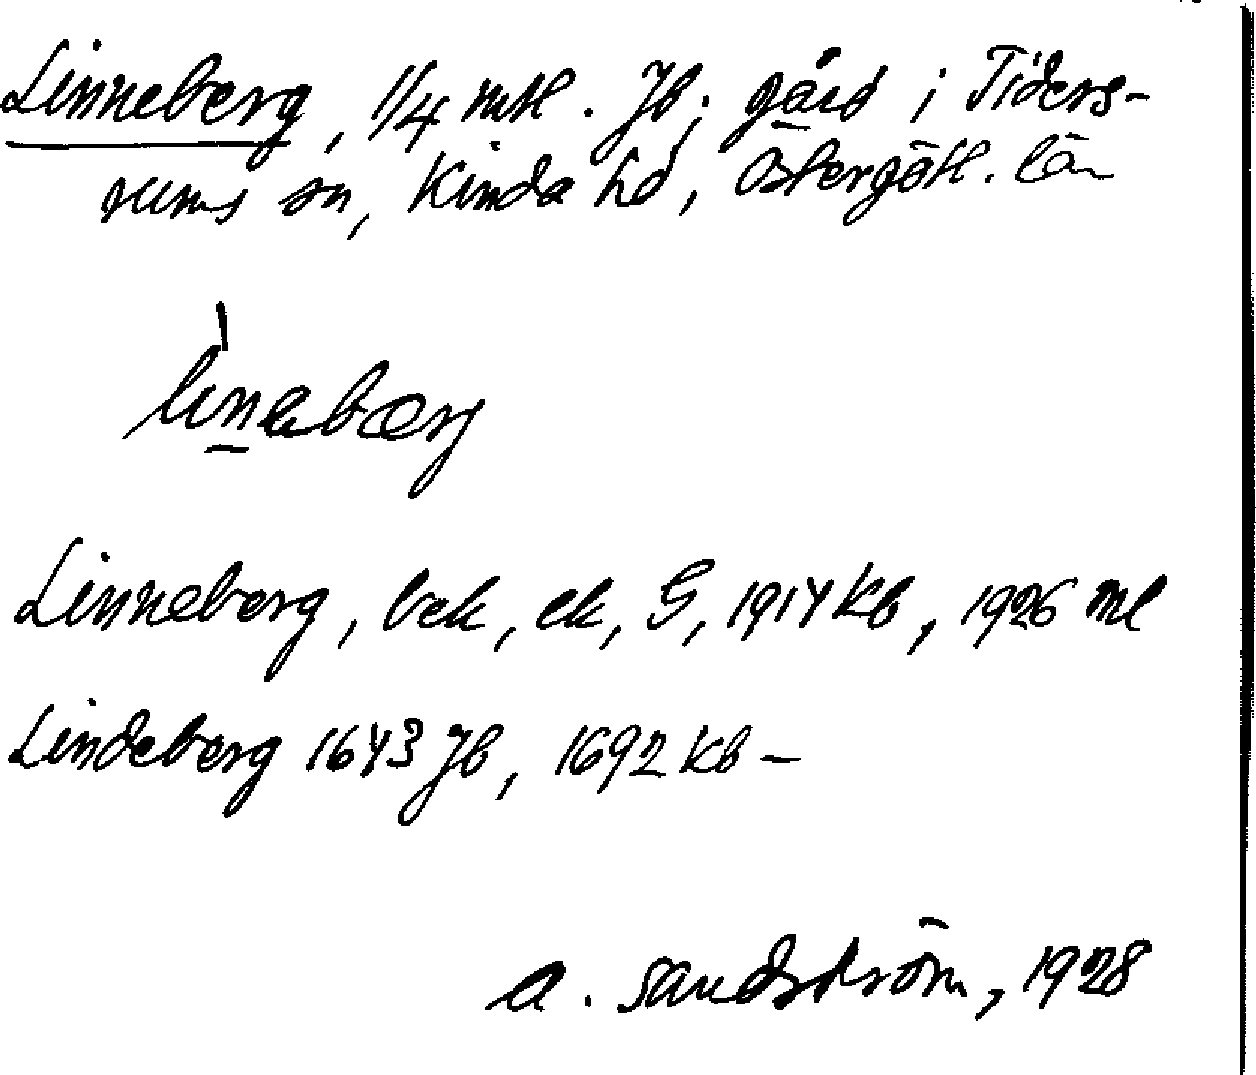 Linneberg, 1/4 mtl. Jb; gård i Tiders-
rums sn, Kinda hd, Östergötl. län
lìnebærj
Linneberg, bek, ek, G, 1914 Kb, 1926 ml
Lindeberg 1643 Jb, 1692 Kb –
A. Sandström, 1928